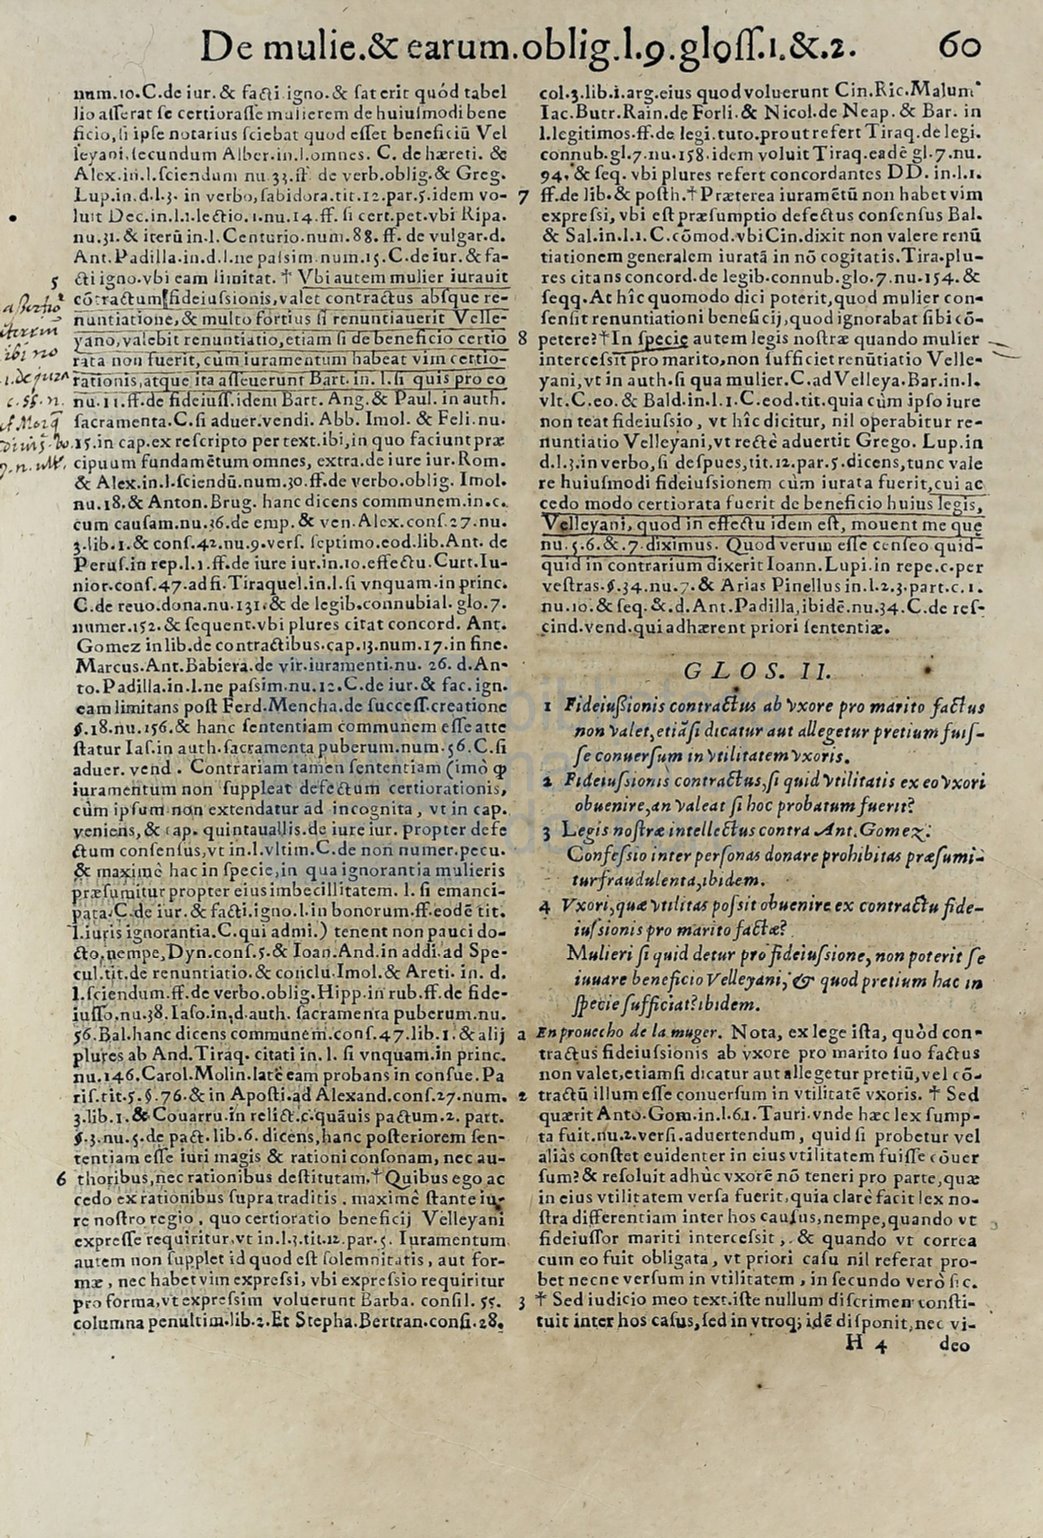 De mulie.& earum.oblig.l.9.gloſſ.1.&.2. 60
num.10.C.de iur.& facti igno.& ſat erit quód tabel
lio aſſerat ſe certioraſſe mulierem de huiuſmodi bene
ficio, ſi ipſe notarius ſciebat quod eſſet beneficiū Vel
leyani, ſecundum Alber.in.l.omnes. C. de hæreti. &
Alex.in.l.ſciendum nu.33.ff. de verb.oblig.& Greg.
Lup.in.d.l.3. in verbo, ſabidora.tit.12.par.5.idem vo-
luit Dec.in.l.1.lectio.1.nu.14.ff. ſi cert.pet.vbi Ripa.
nu.31.& iterū in.l.Centurio.num.88.ff. de vulgar.d.
Ant.Padilla.in.d.l.ne paſsim.num.15.C.de iur.& fa-
5 cti igno.vbi eam limitat. † Vbi autem mulier iurauit
cōtractum fideiuſsionis, valet contractus abſque re-
nuntiatione, & multo fortius ſi renuntiauerit Velle-
yano, valebit renuntiatio, etiam ſi de beneficio certio
rata non fuerit, cúm iuramentum habeat vim certio-
rationis, atque ita aſſeuerunt Bart. in. l. ſi quis pro eo
nu.11.ff.de fideiuſſ.idem Bart. Ang.& Paul. in auth.
ſacramenta.C.ſi aduer.vendi. Abb. Imol. & Feli.nu.
15.in cap.ex reſcripto per text.ibi, in quo faciunt præ
cipuum fundamētum omnes, extra.de iure iur.Rom.
& Alex.in.l.ſciendū.num.30.ff.de verbo.oblig. Imol.
nu.18.& Anton.Brug. hanc dicens communem.in.c.
cum cauſam.nu.36.de emp.& ven.Alex.conſ.27.nu.
3.lib.1.& conſ.42.nu.9.verſ. ſeptimo.eod.lib.Ant. de
Peruſ.in rep.l.1.ff.de iure iur.in.10.effectu.Curt.Iu-
nior.conſ.47.ad fi.Tiraquel.in.l.ſi vnquam.in princ.
C.de reuo.dona.nu.131.& de legib.connubial. glo.7.
numer.152.& ſequent.vbi plures citat concord. Ant.
Gomez in lib.de contractibus.cap.13.num.17.in fine.
Marcus.Ant.Babiera.de vir.iuramenti.nu. 26. d.An-
to.Padilla.in.l.ne paſsim.nu.12.C.de iur.& fac.ign.
eam limitans poſt Ferd.Mencha.de ſucceſſ.creatione
§.18.nu.156.& hanc ſententiam communem eſſe atte
ſtatur Iaſ.in auth.ſacramenta puberum.num.56.C.ſi
aduer. vend . Contrariam tamen ſententiam (imò ꝙ
iuramentum non ſuppleat defectum certiorationis,
cùm ipſum non extendatur ad incognita, vt in cap.
veniens, & cap. quintauallis.de iure iur. propter defe
ctum conſenſus, vt in.l.vltim.C.de non numer.pecu.
& maximè hac in ſpecie, in qua ignorantia mulieris
præſumitur propter eius imbecillitatem. l. ſi emanci-
pata.C.de iur.& facti.igno.l.in bonorum.ff.eodē tit.
l.iuris ignorantia.C.qui admi.) tenent non pauci do-
cto, nempe, Dyn.conſ.5.& Ioan.And.in addi.ad Spe-
cul.tit.de renuntiatio.& conclu.Imol.& Areti. in. d.
l.ſciendum.ff.de verbo.oblig.Hipp.in rub.ff.de fide-
iuſſo.nu.38.Iaſo.in.d.auth. ſacramenta puberum.nu.
56.Bal.hanc dicens communem.conſ.47.lib.1.& alij
plures ab And.Tiraq. citati in. l. ſi vnquam.in princ.
nu.146.Carol.Molin.latè eam probans in conſue.Pa
riſ.tit.5.§.76.& in Apoſti.ad Alexand.conſ.27.num.
3.lib.1.& Couarru.in relict.c.quāuis pactum.2. part.
§.3.nu.5.de pact.lib.6. dicens, hanc poſteriorem ſen-
tentiam eſſe iuri magis & rationi conſonam, nec au-
6 thoribus, nec rationibus deſtitutam. † Quibus ego ac
cedo ex rationibus ſupra traditis . maximè ſtante iu-
re noſtro regio , quo certioratio beneficij Velleyani
expreſſe requiritur, vt in.l.3.tit.12.par.5. Iuramentum
autem non ſupplet id quod eſt ſolemnitatis , aut for-
mæ , nec habet vim expreſsi, vbi expreſsio requiritur
pro forma, vt expreſsim voluerunt Barba. conſil. 55.
columna penultim.lib.2.Et Stepha.Bertran.conſi.28.
col.3.lib.i.arg.eius quod voluerunt Cin.Ric.Malum
Iac.Butr.Rain.de Forli.& Nicol.de Neap.& Bar. in
l.legitimos.ff.de legi.tuto.prout refert Tiraq.de legi.
connub.gl.7.nu.158.idem voluit Tiraq.eadē gl.7.nu.
94.& ſeq. vbi plures refert concordantes DD. in.l.1.
7 ff.de lib.& poſth. † Præterea iuramētū non habet vim
expreſsi, vbi eſt præſumptio defectus conſenſus Bal.
& Sal.in.l.1.C.cōmod.vbi Cin.dixit non valere renū
tiationem generalem iuratā in nō cogitatis.Tira.plu-
res citans concord.de legib.connub.glo.7.nu.154.&
ſeqq.At hîc quomodo dici poterit, quod mulier con-
ſenſit renuntiationi beneficij, quod ignorabat ſibi cō-
8 petere? † In ſpecie autem legis noſtræ quando mulier
interceſsit pro marito, non ſufficiet renūtiatio Velle-
yani, vt in auth.ſi qua mulier.C.ad Velleya.Bar.in.l.
vlt.C.eo.& Bald.in.l.1.C.eod.tit.quia cùm ipſo iure
non teat fideiuſsio , vt hîc dicitur, nil operabitur re-
nuntiatio Velleyani, vt rectè aduertit Grego. Lup.in
d.l.3.in verbo, ſi deſpues, tit.12.par.5.dicens, tunc vale
re huiuſmodi fideiuſsionem cùm iurata fuerit, cui ac
cedo modo certiorata fuerit de beneficio huius legis,
Velleyani, quod in effectu idem eſt, mouent me quę
nu.5.6.&.7.diximus. Quod verum eſſe cenſeo quid-
quid in contrarium dixerit Ioann.Lupi.in repe.c.per
veſtras.§.34.nu.7.& Arias Pinellus in.l.2.3.part.c.1.
nu.10.& ſeq.&.d.Ant.Padilla, ibidē.nu.34.C.de reſ-
cind.vend.qui adhærent priori ſententiæ.
GLOS. II.
1 Fideiuſsionis contractus ab vxore pro marito factus
non valet, etiāſi dicatur aut allegetur pretium fuiſ-
ſe conuerſum in vtilitatem vxoris.
2 Fideiuſsionis contractus, ſi quid vtilitatis ex eo vxori
obuenire, an valeat ſi hoc probatum fuerit?
3 Legis noſtræ intellectus contra Ant.Gomez.
Confeſsio inter perſonas donare prohibitas præſumi-
tur fraudulenta, ibidem.
4 Vxori, quæ vtilitas poſsit obuenire ex contractu fide-
iuſsionis pro marito facta?
Mulieri ſi quid detur pro fideiuſsione, non poterit ſe
iuuare beneficio Velleyani, & quod pretium hac in
ſpecie ſufficiat? ibidem.
a En prouecho de la muger. Nota, ex lege iſta, quòd con-
tractus fideiuſsionis ab vxore pro marito ſuo factus
non valet, etiamſi dicatur aut allegetur pretiū, vel cō-
2 tractū illum eſſe conuerſum in vtilitatē vxoris. † Sed
quærit Anto.Gom.in.l.61.Tauri.vnde hæc lex ſump-
ta fuit.nu.2.verſi.aduertendum , quid ſi probetur vel
aliàs conſtet euidenter in eius vtilitatem fuiſſe cōuer
ſum? & reſoluit adhùc vxorē nō teneri pro parte, quæ
in eius vtilitatem verſa fuerit, quia clarè facit lex no-
ſtra differentiam inter hos cauſus, nempe, quando vt
fideiuſſor mariti interceſsit , & quando vt correa
cum eo fuit obligata , vt priori caſu nil referat pro-
bet necne verſum in vtilitatem , in ſecundo verò ſic.
3 † Sed iudicio meo text.iſte nullum diſcrimen conſti-
tuit inter hos caſus, ſed in vtroq; idē diſponit, nec vi-
H 4 deo